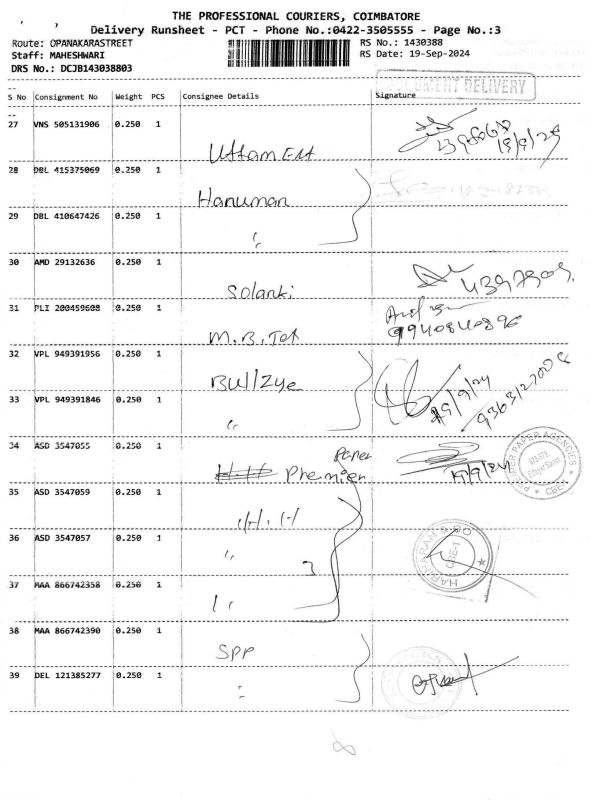 THE PROFESSIONAL COURIERS, COIMBATORE
Delivery Runsheet - PCT - Phone No.:0422-3505555 - Page No.:3
Route: OPANAKARASTREET
RS No.: 1430388
Staff: MAHESHWARI
RS Date: 19-Sep-2024
DRS No.: DCJB143038803
DELIVERY
S No Consignment No Weight PCS Consignee Details Signature
27 VNS 505131906 0.250 1
19/9/24
28 DBL 415375069 0.250 1
Hanuman
29 DBL 410647426 0.250 1
"
30 AMD 29132636 0.250 1
Solanki
31 PLI 200459608 0.250 1
M.B.Tex
9940840896
32 VPL 949391956 0.250 1
Bullzye
19/9/24
33 VPL 949391846 0.250 1
"
34 ASD 3547055 0.250 1
Paper
Premier
19/9/24
PREMIER PAPER AGENCIES
CBE-1
35 ASD 3547059 0.250 1
36 ASD 3547057 0.250 1
"
HARIHARAN & CO
CBE-1
37 MAA 866742358 0.250 1
"
38 MAA 866742390 0.250 1
SPP
39 DEL 121385277 0.250 1